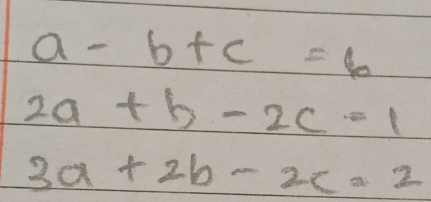 a - b + c = 6
2a + b - 2c = 1
3a + 2b - 2c = 2